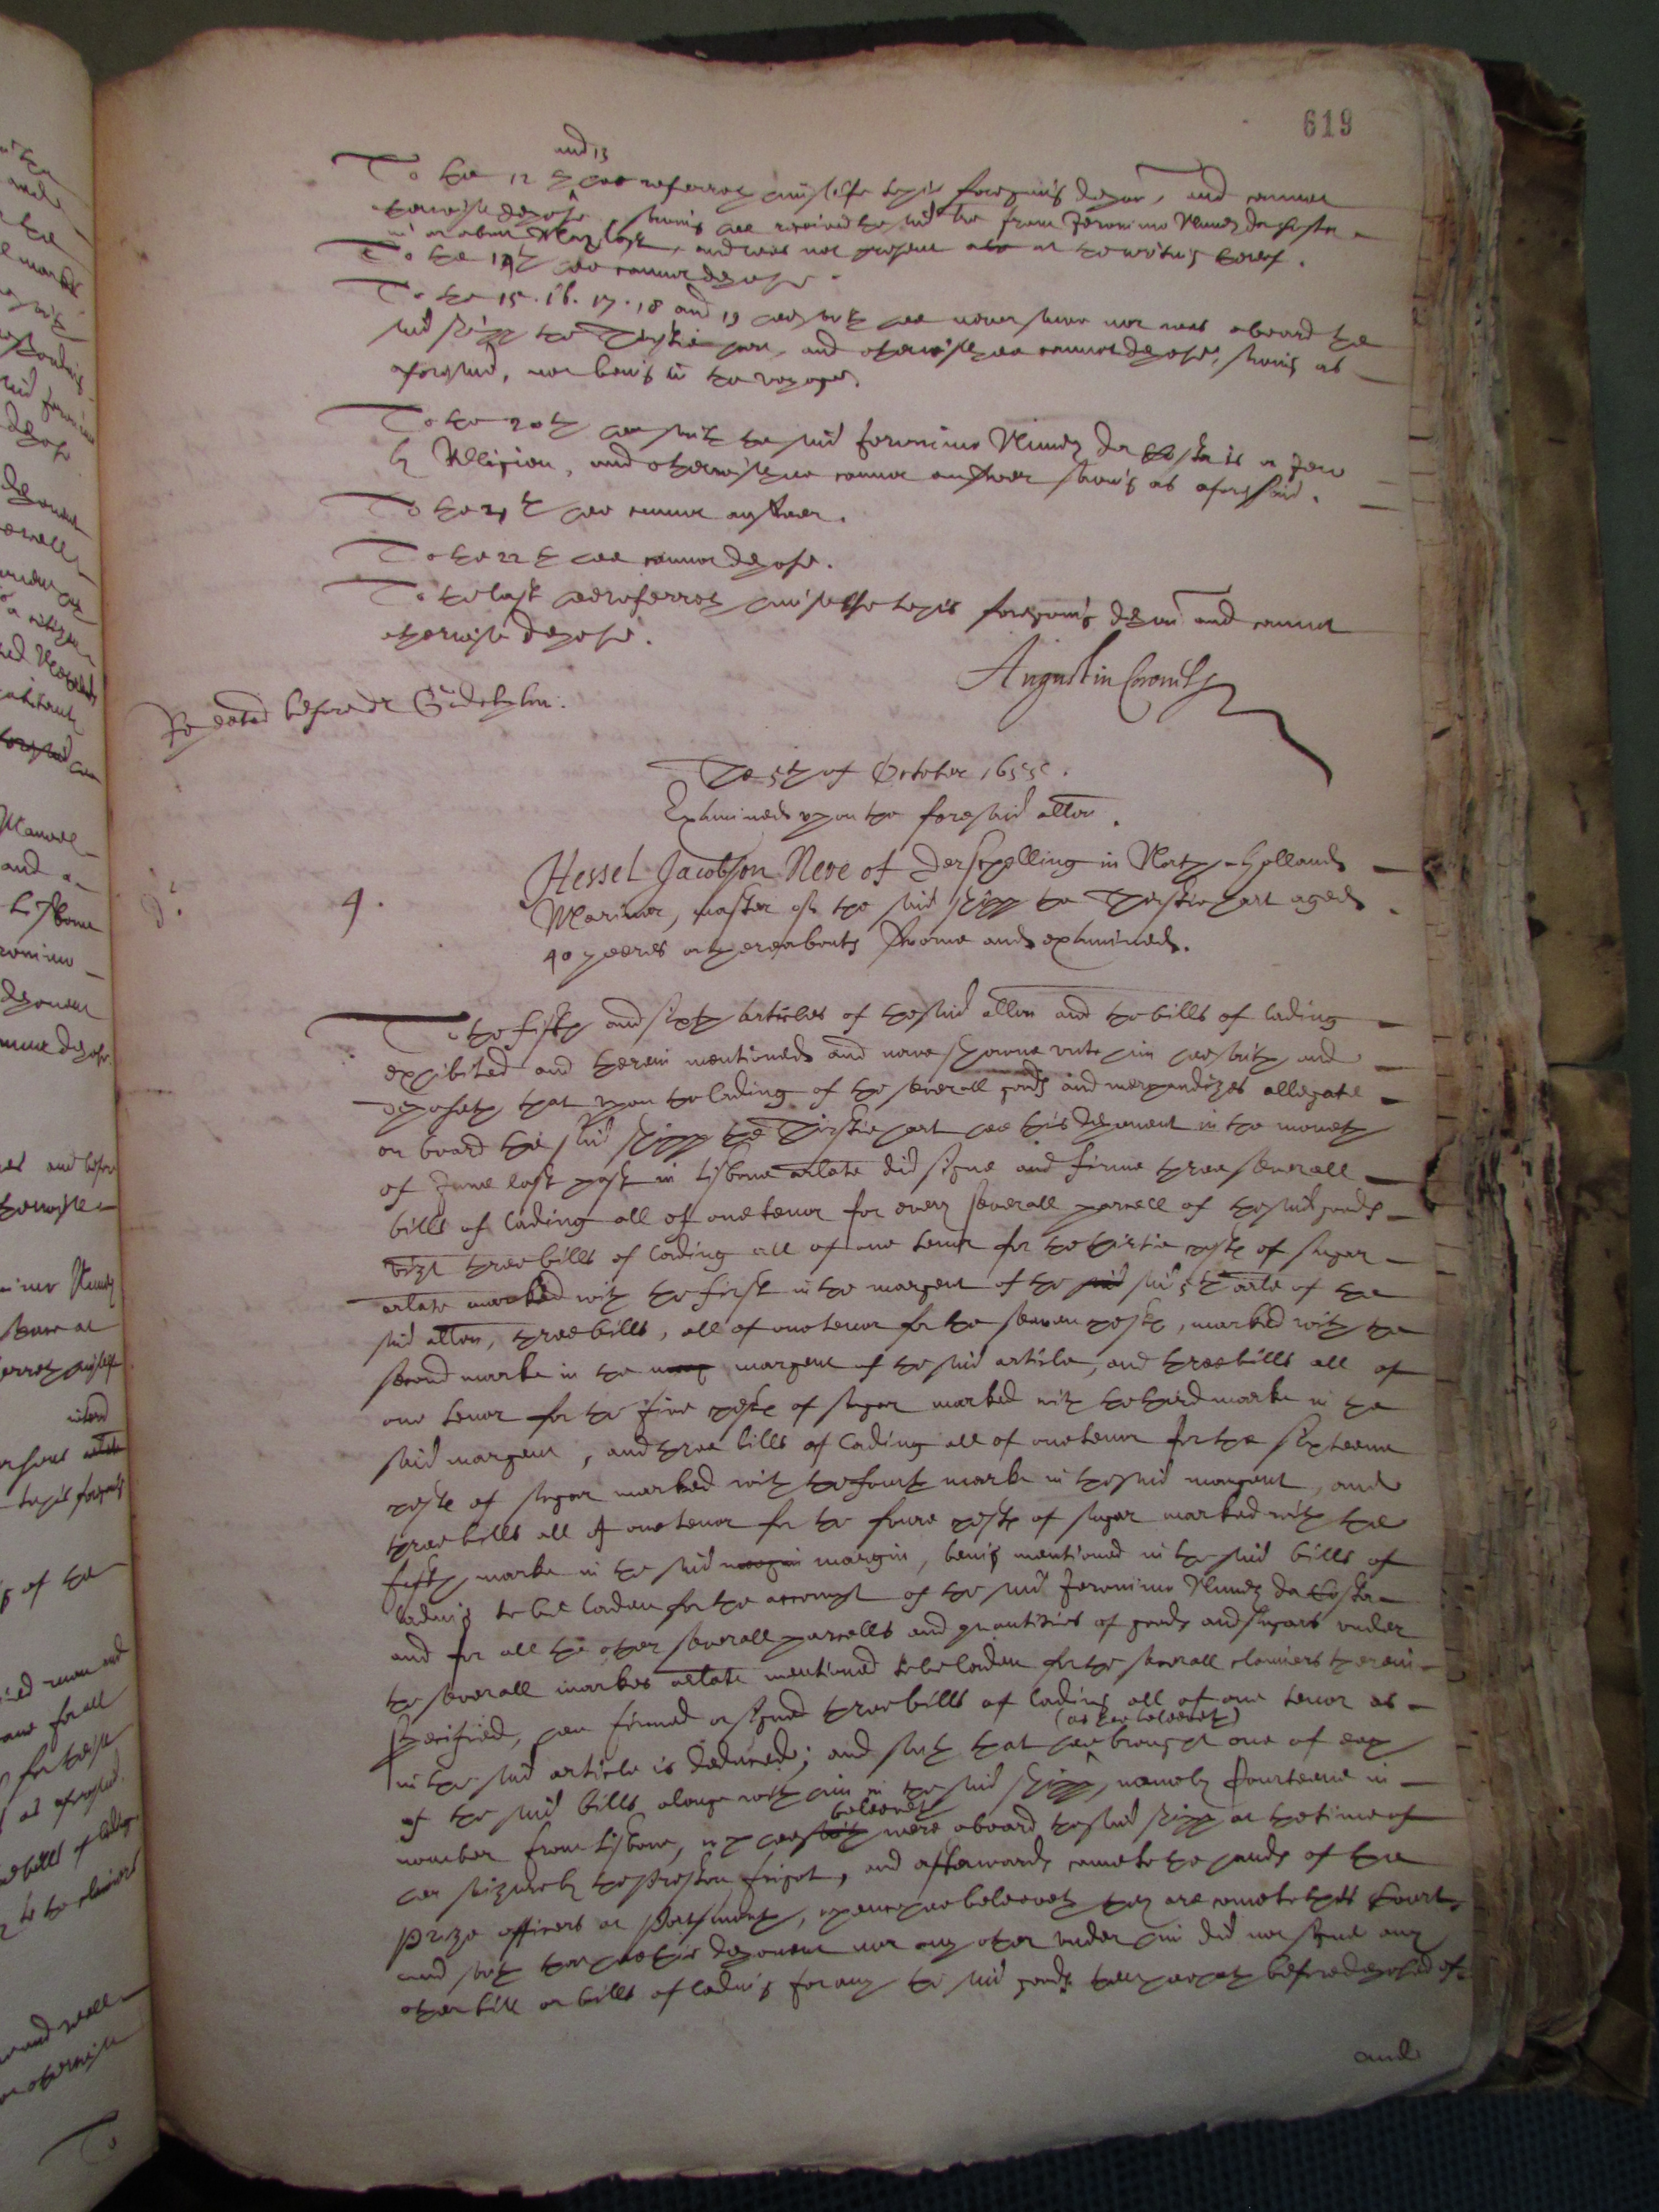 619
and 13
To the 12th hee referreth himselfe to his foregoeing deposn, and cannot
otherwise depose, saving hee received the said from Jeronimo Nunez da Costa
in or about May last, and was not present at the writing thereof.
To the 14th hee cannot depose.
To the 15. 16. 17. 18 and 19 hee saith hee never saw nor was aboard the
said shipp the Thirstie hart, and otherwise hee cannot depose, saving as
aforesaid, not being in the voyage.
To the 20th hee saith the said Jeronimo Nunez da Costa is a Jew
by Religion, and otherwise hee cannot answer saving as aforesaid.
To the 21th hee cannot answer.
To the 22th hee cannot depose.
To the last hee referreth himselfe to his foregoing deposn and cannot
otherwise depose.
Augustin Coronel
Repeated before dr Godolphin.
The 5th of October 1655.
Examined upon the foresaid allon.
4.
Hessel Jacobson Neve of derschelling in North-holland
Mariner, master of the said shipp the Thirstie hart aged
40 yeeres or thereabouts sworne and examined.
To the fifth and sixth articles of the said allon and the bills of lading
exhibited and therein mentioned and now showne unto him hee saith and
deposeth that upon the lading of the severall goods and merchandizes allegate
on board the said shipp the Thirstie hart hee this deponent in the moneth
of June last past in Lisbone arlate did signe and firme three severall
bills of lading all of one tenor for every severall parcell of the said goods
vizt three bills of lading all of one tenor for the thirtie chests of sugar
arlate marked with the first in the margent of the said said 5th arle of the
said allon, three bills, all of one tenor for the seaven chests, marked with the
second marke in the marg margent of the said article, and three bills all of
one tenor for the five chests of sugar marked with the third marke in the
said margent, and three bills of lading all of one tenor for the sixteene
chests of sugar marked with the fourth marke in the said margent, and
three bills all of one tenor for the foure chests of sugar marked with the
fifth marke in the said margin margin, being mentioned in the said bills of
lading to be laden for the accompt of the said Jeronimo Nunez da Costa
and for all the other severall parcells and quantities of goods and sugars under
the severall markes arlate mentioned to be laden for the severall claimers therein
specified, hee firmed or signed three bills of lading all of one tenor as
in the said article is deduced; and saith that hee (as hee beleeveth) brought one of each
of the said bills alonge with him in the said shipp, namely fourteene in
number from Lisbone, wch hee saith beleeveth were aboard the said shipp at the time of
her seizure by the Preston frigot, and afterwards came to the hands of the
prize officers at Portsmouth, whence hee beleeveth they are come to this Court,
and saith that hee this deponent nor any other under him did not signe any
other bill or bills of lading for any the said goods then hee hath before deposed of
and